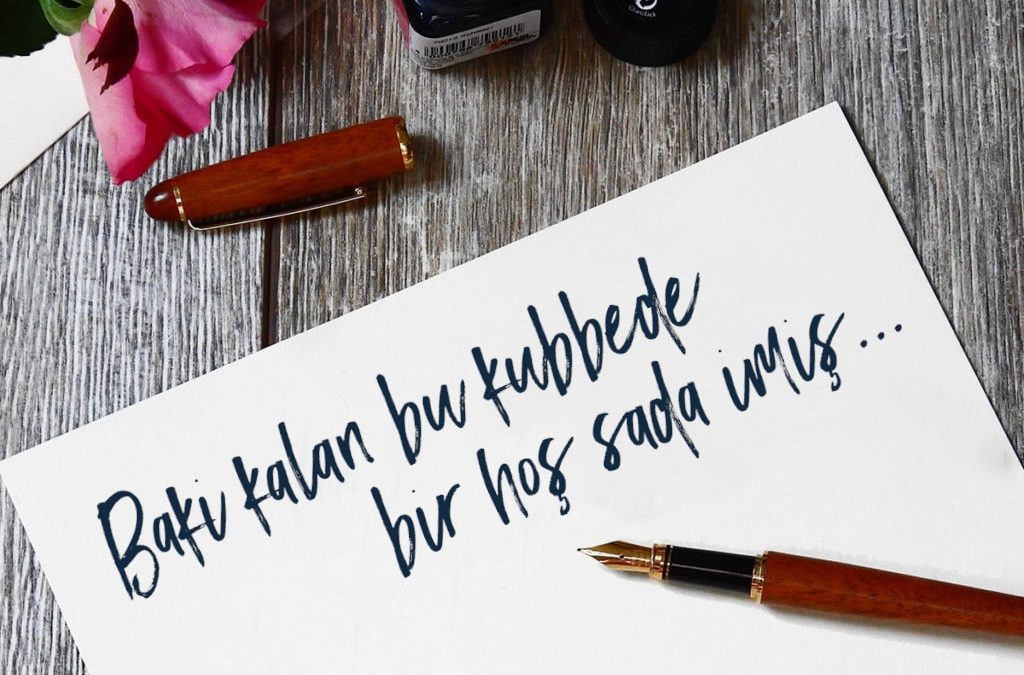 Baki kalan bu kubbede
bir hoş sada imiş...